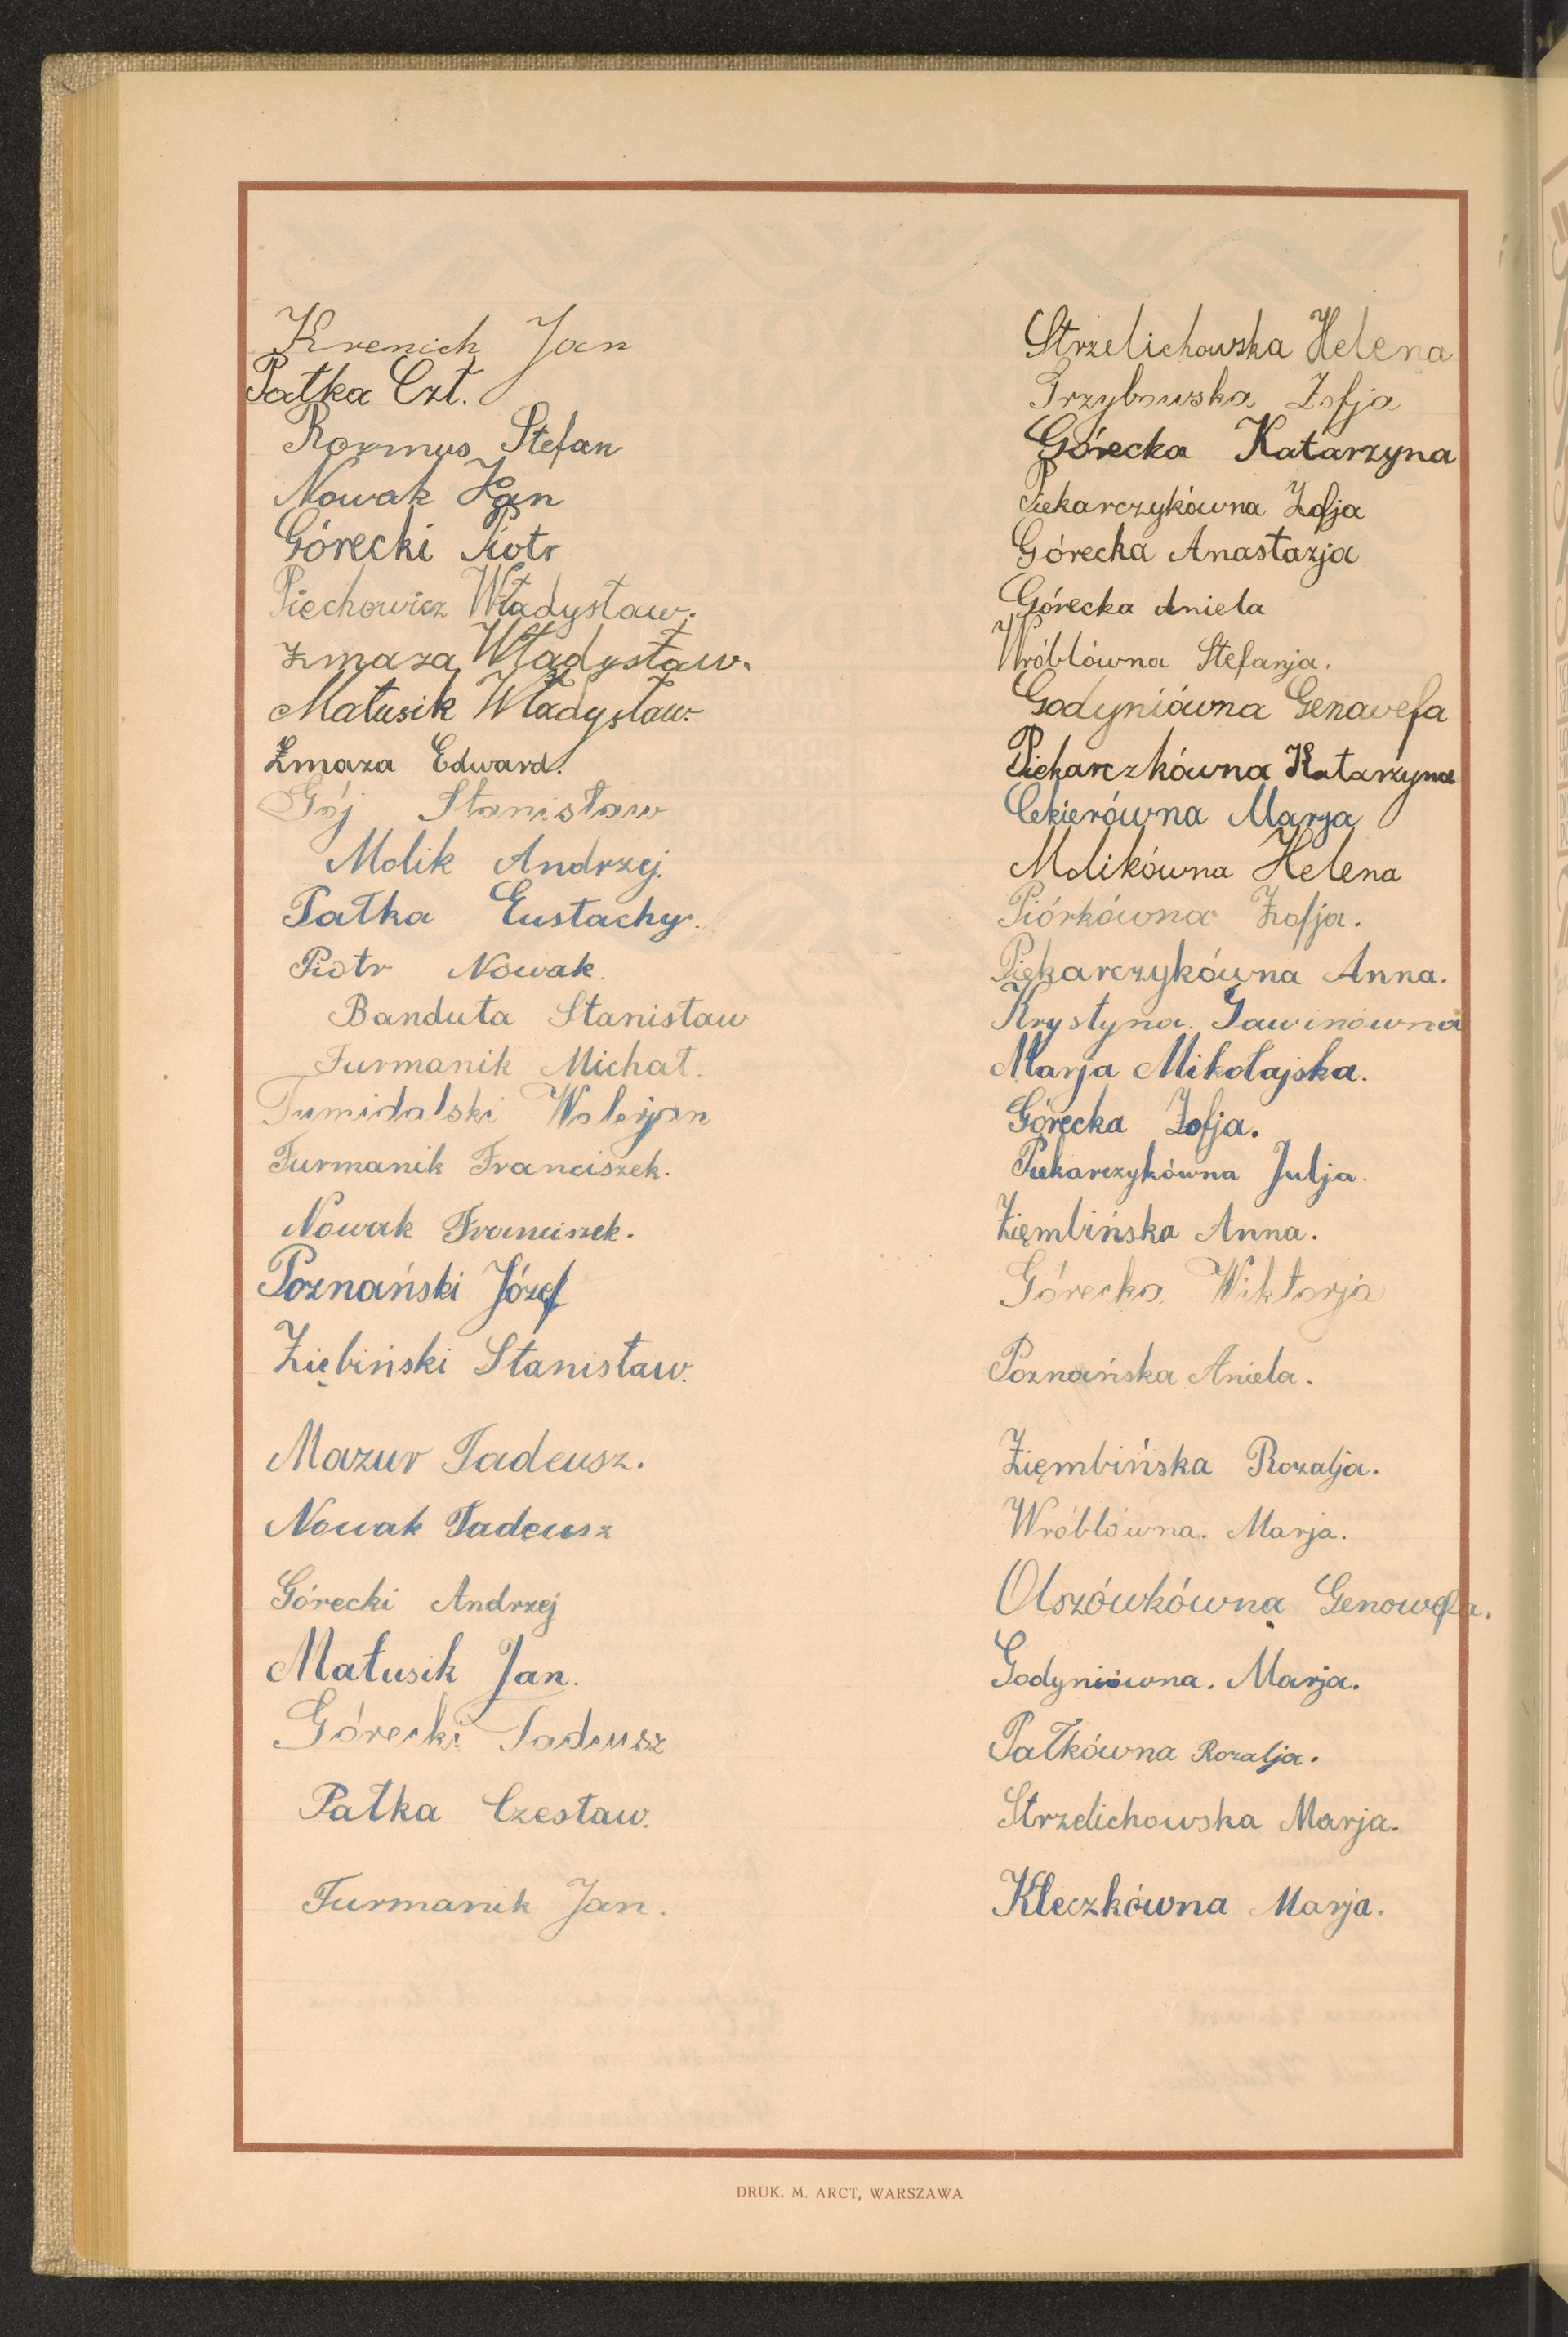 Krenich Jan
Pałka Czt.
Rozmus Stefan
Nowak Jan
Górecki Piotr
Piechowicz Władysław.
Zmaza Władysław.
Matusik Władysław.
Zmaza Edward.
Gój Stanisław
Molik Andrzej.
Pałka Eustachy.
Piotr Nowak.
Banduła Stanisław
Furmanik Michał.
Tumidalski Walerjan
Furmanik Franciszek.
Nowak Franciszek.
Poznański Józef
Ziębiński Stanisław.
Mazur Tadeusz.
Nowak Tadeusz
Górecki Andrzej
Matusik Jan.
Górecki Tadeusz
Pałka Czesław.
Furmanik Jan.
Strzelichowska Helena
Grzybowska Zofja
Górecka Katarzyna
Piekarczykówna Zofja
Górecka Anastazja
Górecka Aniela
Wróblówna Stefanja.
Godyniówna Genowefa
Piekarczkówna Katarzyna
Cekierówna Marja
Molikówna Helena
Piórkówna Zofja.
Piekarczykówna Anna.
Krystyna. Gawinówna
Marja Mikołajska.
Górecka Zofja.
Piekarczykówna Julja.
Ziembińska Anna.
Górecka Wiktorja
Poznańska Aniela.
Zięmbińska Rozalja.
Wróblówna. Marja.
Olszówkówna Genowefa.
Godyniówna. Marja.
Pałkówna Rozalja.
Strzelichowska Marja.
Kleczkówna Marja.
DRUK. M. ARCT, WARSZAWA